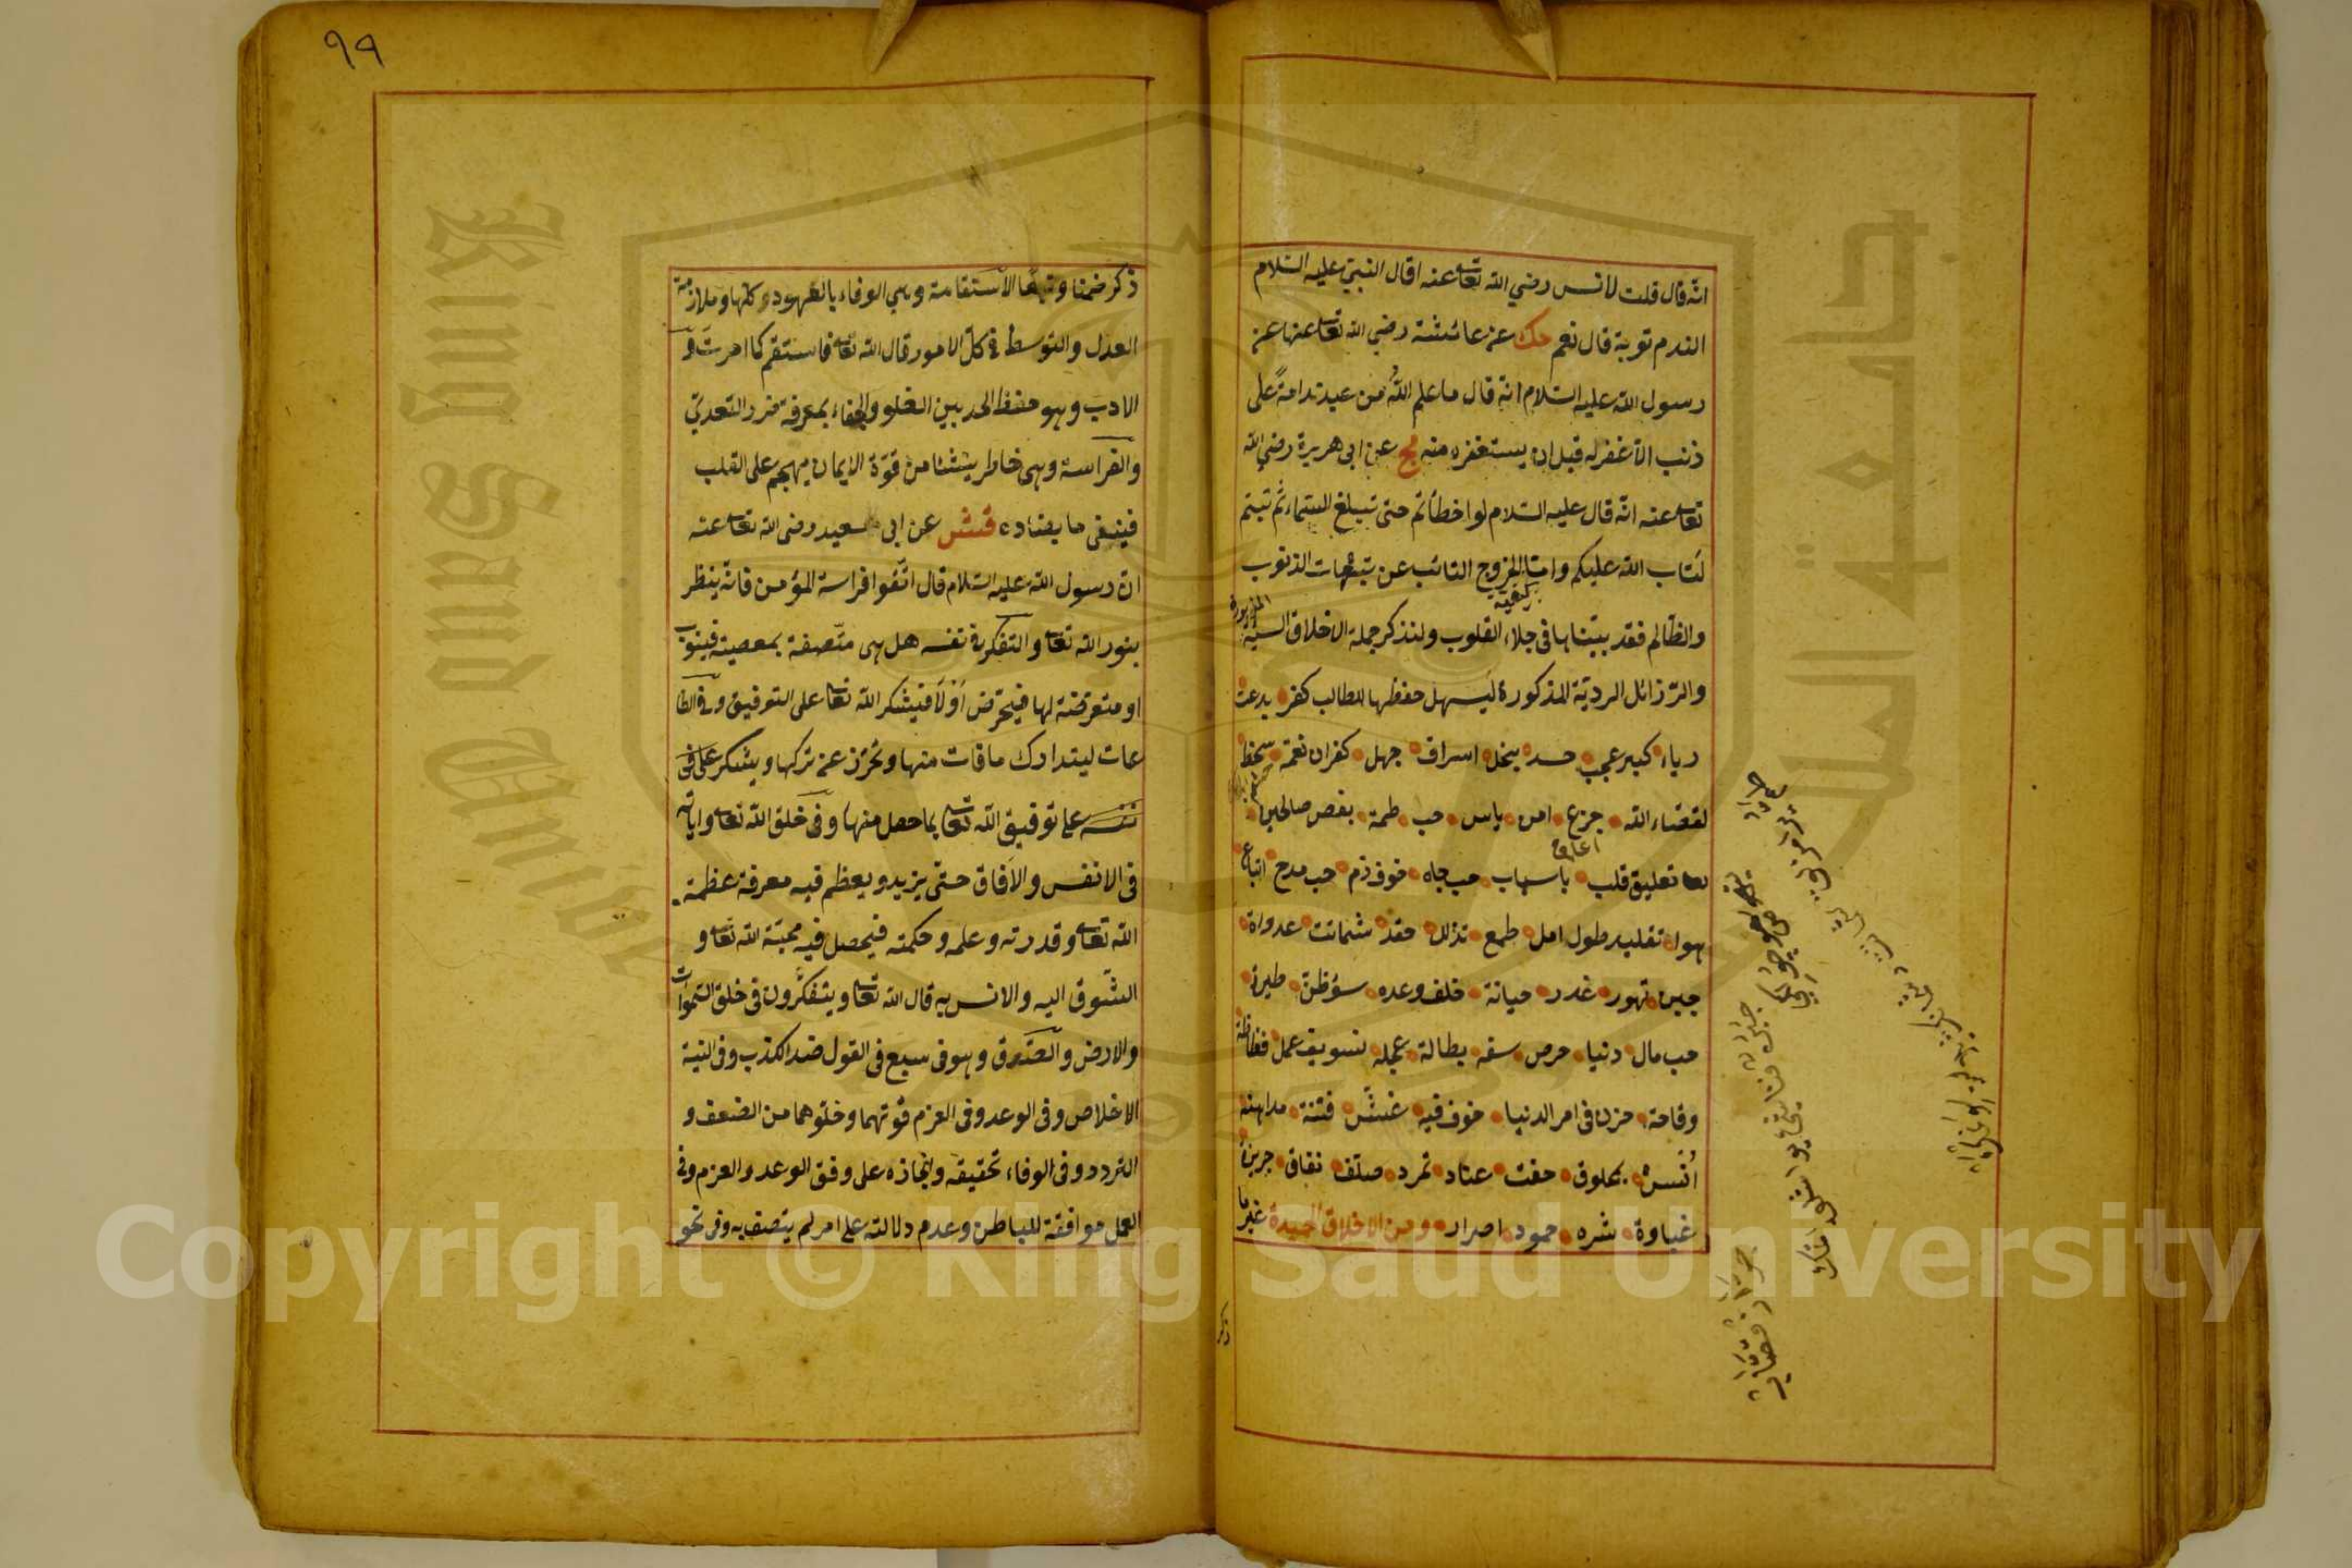 انه قال قلت لانس رضي الله تعا عنه اقال النبي عليه السلام
الندم توبة قال نعم حك عن عائشة رضي الله تعا عنها عن
رسول الله عليه السلام انه قال ما علم الله من عبد ندامة على
ذنب الا غفر له قبل ان يستغفره منه مج عن ابى هريرة رضي الله
تعا عنه انه قال عليه السلام لو اخطأتم حتى تبلغ السماء ثم تبتم
لتاب الله عليكم واما الخروج التائب عن تبعات الذنوب
كيفية
والظالم فقد بيناها فى جلاء القلوب ولنذكر جملة الاخلاق السيئة
المزبورة
والرزائل الردية المذكورة ليسهل حفظها للطالب كفر بدعت
رياء كبر عجب حسد بخل اسراف جهل كفران نعمة سخط
لقضاء الله جزع امن ياس حب ظلمة بغض صالحين
تعليق قلب باسباب حب جاه خوف ذم حب مدح اتباع
هوا تقليد طول امل طمع تذلل حقد شماتت عدواة
جبن تهور غدر خيانة خلف وعده سؤظن طيرة
حب مال دنيا حرص سفه بطالة عجله تسويف عمل فظاظة
وقاحة حزن فى امر الدنيا خوف فيه غش فتنة مداهنه
أنس بمخلوق خفت عناد تمرد صلف نفاق جربزة
غباوة شره خمود اصرار ومن الاخلاق الحميدة غير ما
ذكر
٩٩
ذكر ضمنا وتبعا الاستقامة وهي الوفاء بالعهود كلها وملازمة
العدل والتوسط فى كل الامور قال الله تعا فاستقم كما امرت و
الادب وهو حفظ الحد بين الغلو والجفاء بمعرفة ضرر التعدي
والفراسة وهى خاطر ينشئا من قوة الايمان يهجم على القلب
فينفى ما يضاده قشش عن ابى سعيد رضى الله تعا عنه
ان رسول الله عليه السلام قال اتقوا فراسة المؤمن فانه ينظر
بنور الله تعا والتفكر فى نفسه هل هى متصفة بمعصية فيتوب
او متعرضة لها فيحترض أو لا فيشكر الله تعا على التوفيق وفى الطا
عات ليتدارك ما فات منها وتحرز عن تركها ويشكر على فى
نفسه على توفيق الله تعا بما حصل منها وفى خلق الله تعا واياته
فى الانفس والآفاق حتى يزيد ويعظم فيه معرفة عظمة
الله تعا وقدرته وعلمه وحكمته فيحصل فيه محبة الله تعا و
الشوق اليه والانس به قال الله تعا ويتفكرون فى خلق السموات
والارض والصدق وهو فى سبع فى القول ضد الكذب وفى النية
الاخلاص وفى الوعد وفى العزم قوتهما وخلوهما من الضعف و
التردد وفى الوفاء تحقيقه وانجازه على وفق الوعد والعزم وفى
العمل موافقة للباطن وعدم دلالته على امر لم يتصف به وفى نحو
جامعة الملك
King Saud Unive
Copyright © King Saud University